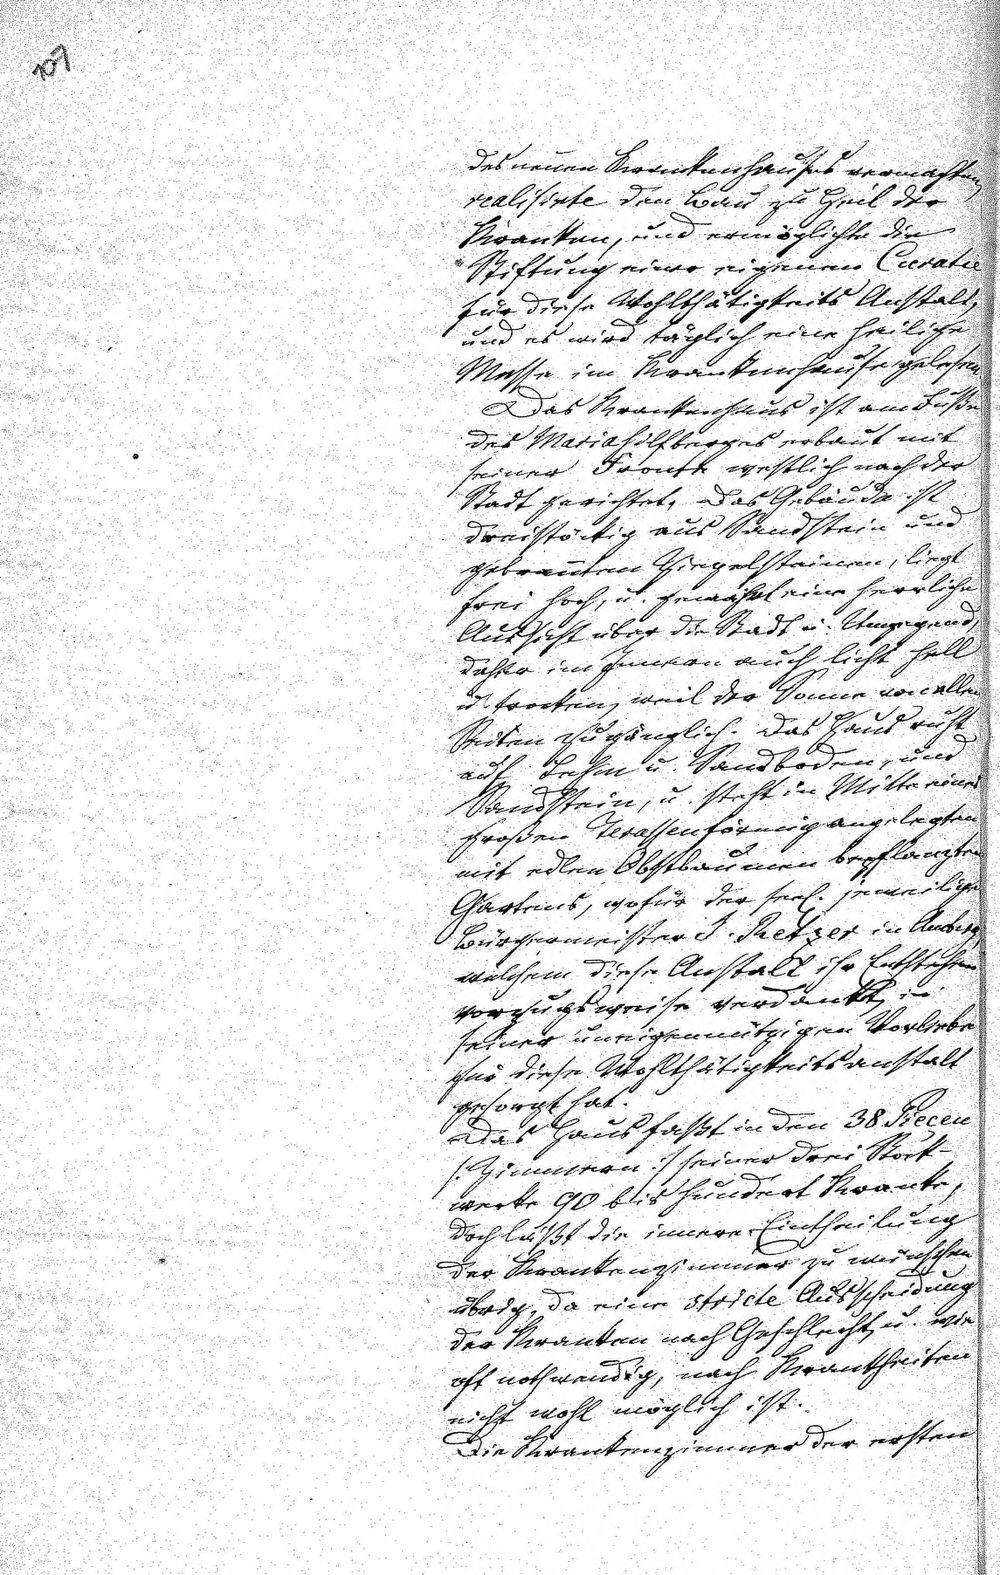 107
des neuen Krankenhauses vermachten,
realisirte den Bau zu Theil der
Kranken, und ermöglichte die
Stiftung einer eigenen Curatie
für diese Wohlthätigkeits Anstalt,
und es wird täglich eine heilige
Messe im Krankenhause gelesen.
Das Krankenhaus ist am Fuße
des Mariahilfberges erbaut mit
seiner Fronte westlich nach der
Stadt gerichtet. Das Gebäude ist
dreistöckig aus Sandstein und
gebrannten Ziegelsteinen, liegt
frei hoch, u. gewährt eine herrliche
Aussicht über die Stadt u. Umgegend,
daher im Innern auch licht hell
u. trocken, weil der Sonne von allen
Seiten zugänglich. Das Haus ruht
auf Lehm u. Sandboden, und
Sandstein, u. steht in Mitte eines
großen Terassenförmig angelegten
mit edlen Obstbaumen bepflanzten
Gartens, wofür der jeweilige
Bürgermeister J. Retzer in Amberg,
welchem diese Anstalt ihr Entstehen
vorzugsweise verdankt, in
seiner uneigennützigen Vorliebe
für diese Wohlthätigkeitsanstalt
gesorgt hat.
Das Haus faßt in den 38 Piecen
/: Zimmern :/ seiner drei Stock-
werke 90 bis hundert Kranke,
doch läßt die innere Eintheilung
der Krankenzimmer zu wünschen
übrig, da eine stricte Ausscheidung
der Kranken nach Geschlecht, u. wie
oft nothwendig, nach Krankheiten
nicht wohl möglich ist.
Die Krankenzimmer der ersten